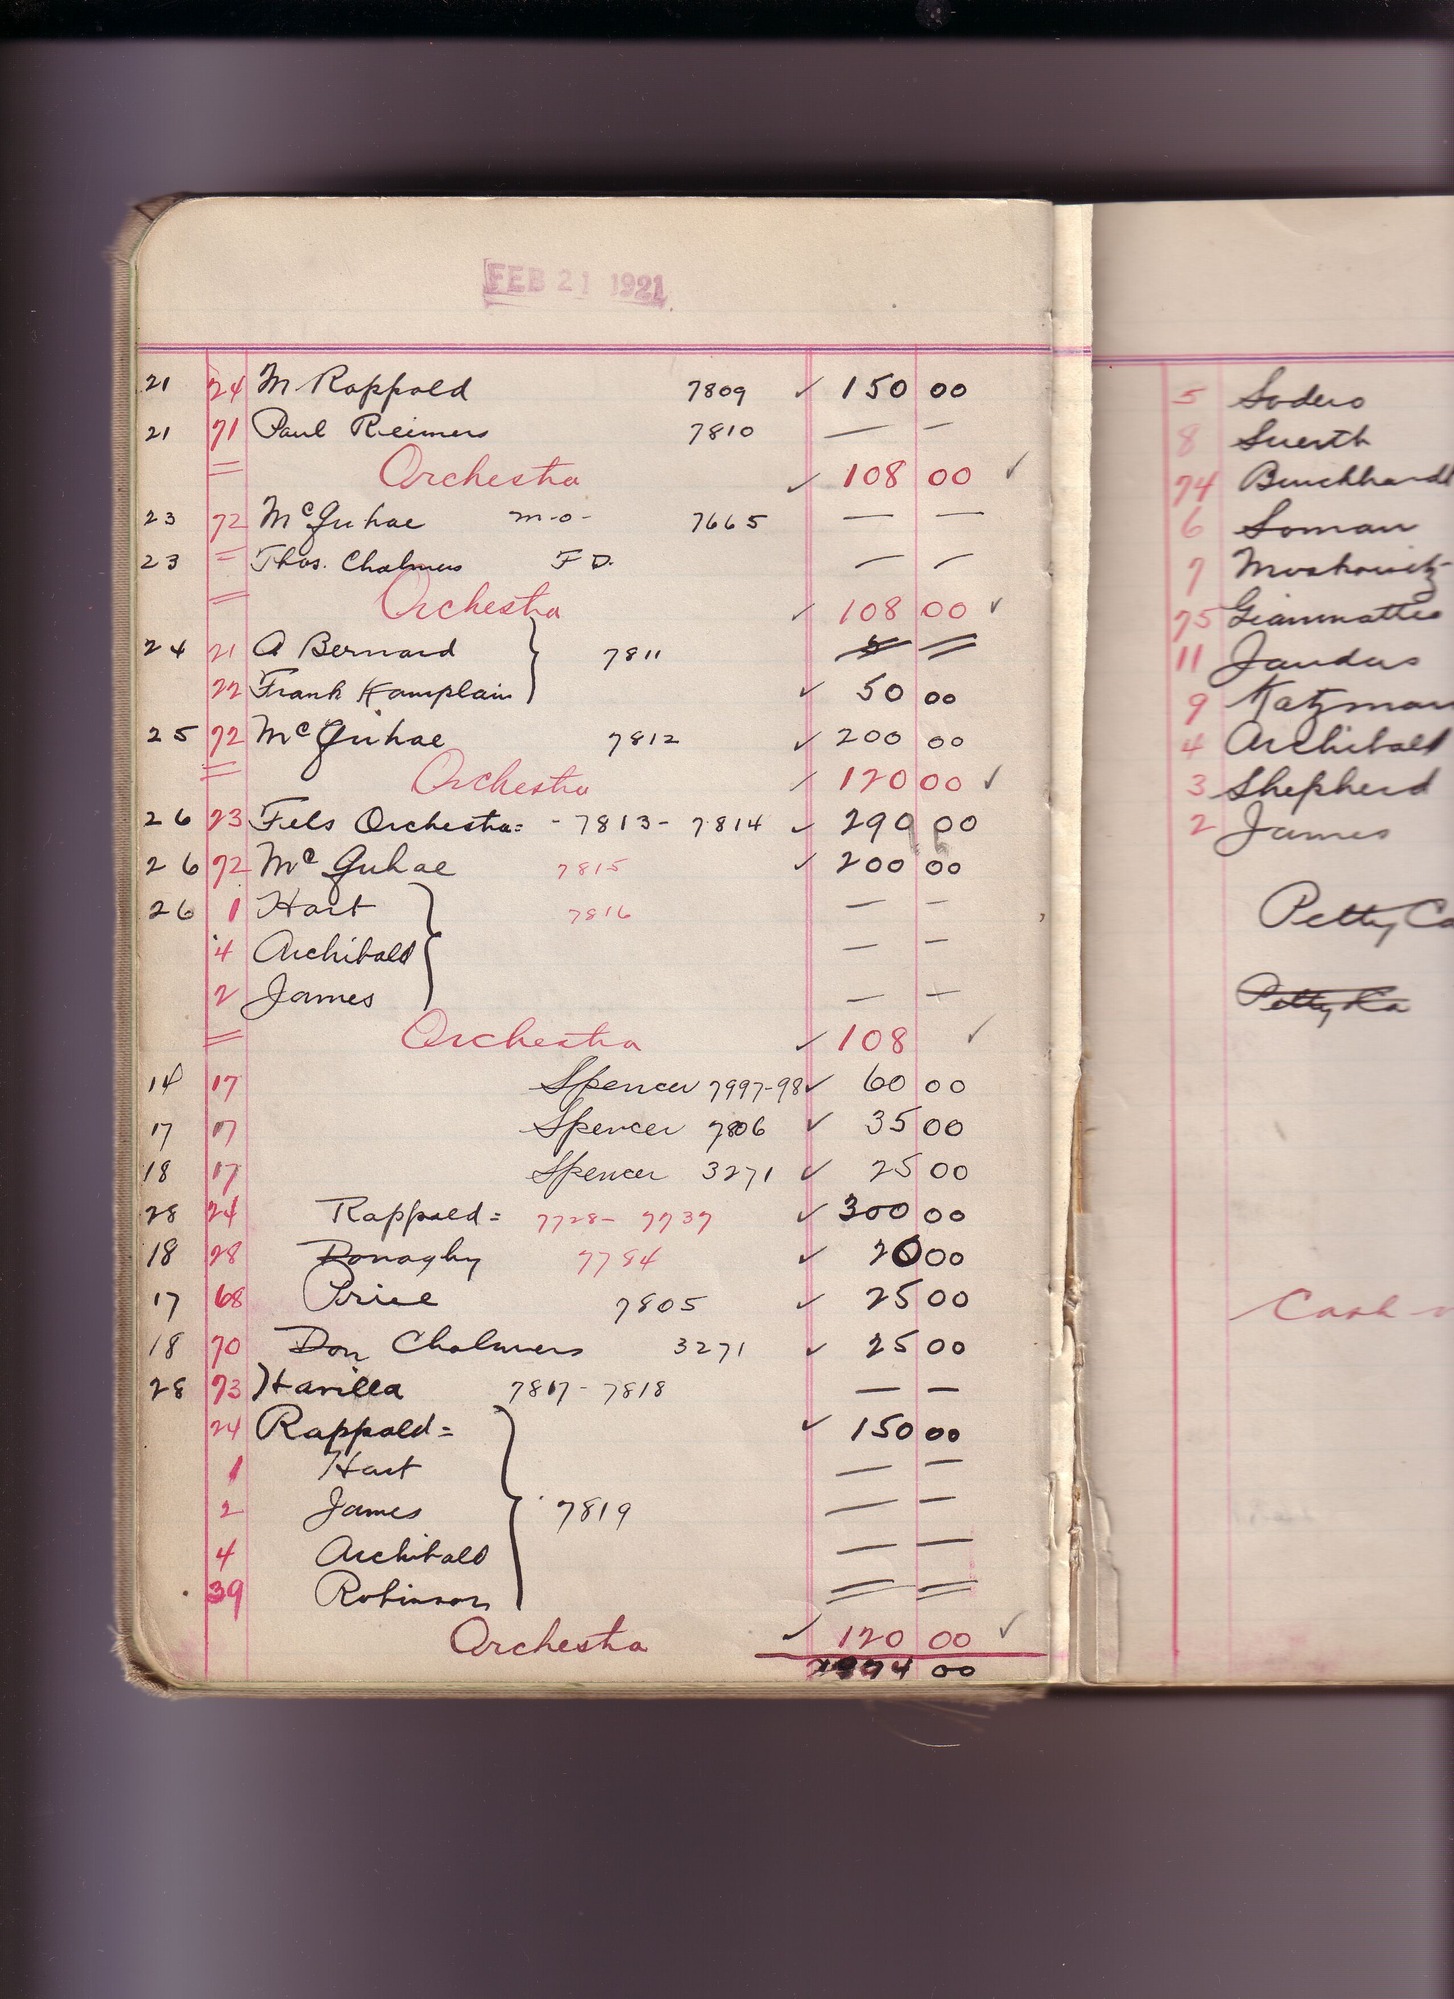 FEB 21 1921
21 24 M Rappold 7809 ✓ 150 00
21 71 Paul Reimers 7810 — —
= Orchestra ✓ 108 00 ✓
23 72 McGuhae m-o- 7665 — —
23 = Thos. Chalmers F D. — —
= Orchestra ✓ 108 00 ✓
24 21 A Bernard } 7811
22 Frank Kamplain ✓ 50 00
25 72 McGuhae 7812 ✓ 200 00
= Orchestra ✓ 120 00 ✓
26 23 Fels Orchestra= - 7813 - 7814 ✓ 290 00
26 72 McGuhae 7815 ✓ 200 00
26 1 Hart } 7816 — —
4 Archibald — —
2 James — —
= Orchestra ✓ 108 ✓
14 17 Spencer 7997-98 ✓ 60 00
17 17 Spencer 7806 ✓ 35 00
18 17 Spencer 3271 ✓ 25 00
28 24 Rappold = 7728 - 7737 ✓ 300 00
18 28 Donaghy 7784 ✓ 20 00
17 68 Price 7805 ✓ 25 00
18 70 Don Chalmers 3271 ✓ 25 00
28 73 Harilla 7817 - 7818 — —
24 Rappold = ✓ 150 00
1 Hart — —
2 James } 7819 — —
4 Archibald — —
39 Robinson = =
Orchestra ✓ 120 00 ✓
74 00
5 Sodero
8 Suerth
74 Burckhardt
6 Soman
7 Moskowitz
75 Giammatteo
11 Jaudas
9 Katzman
4 Archibald
3 Shepherd
2 James
Petty Ca
Petty Ca
Cash